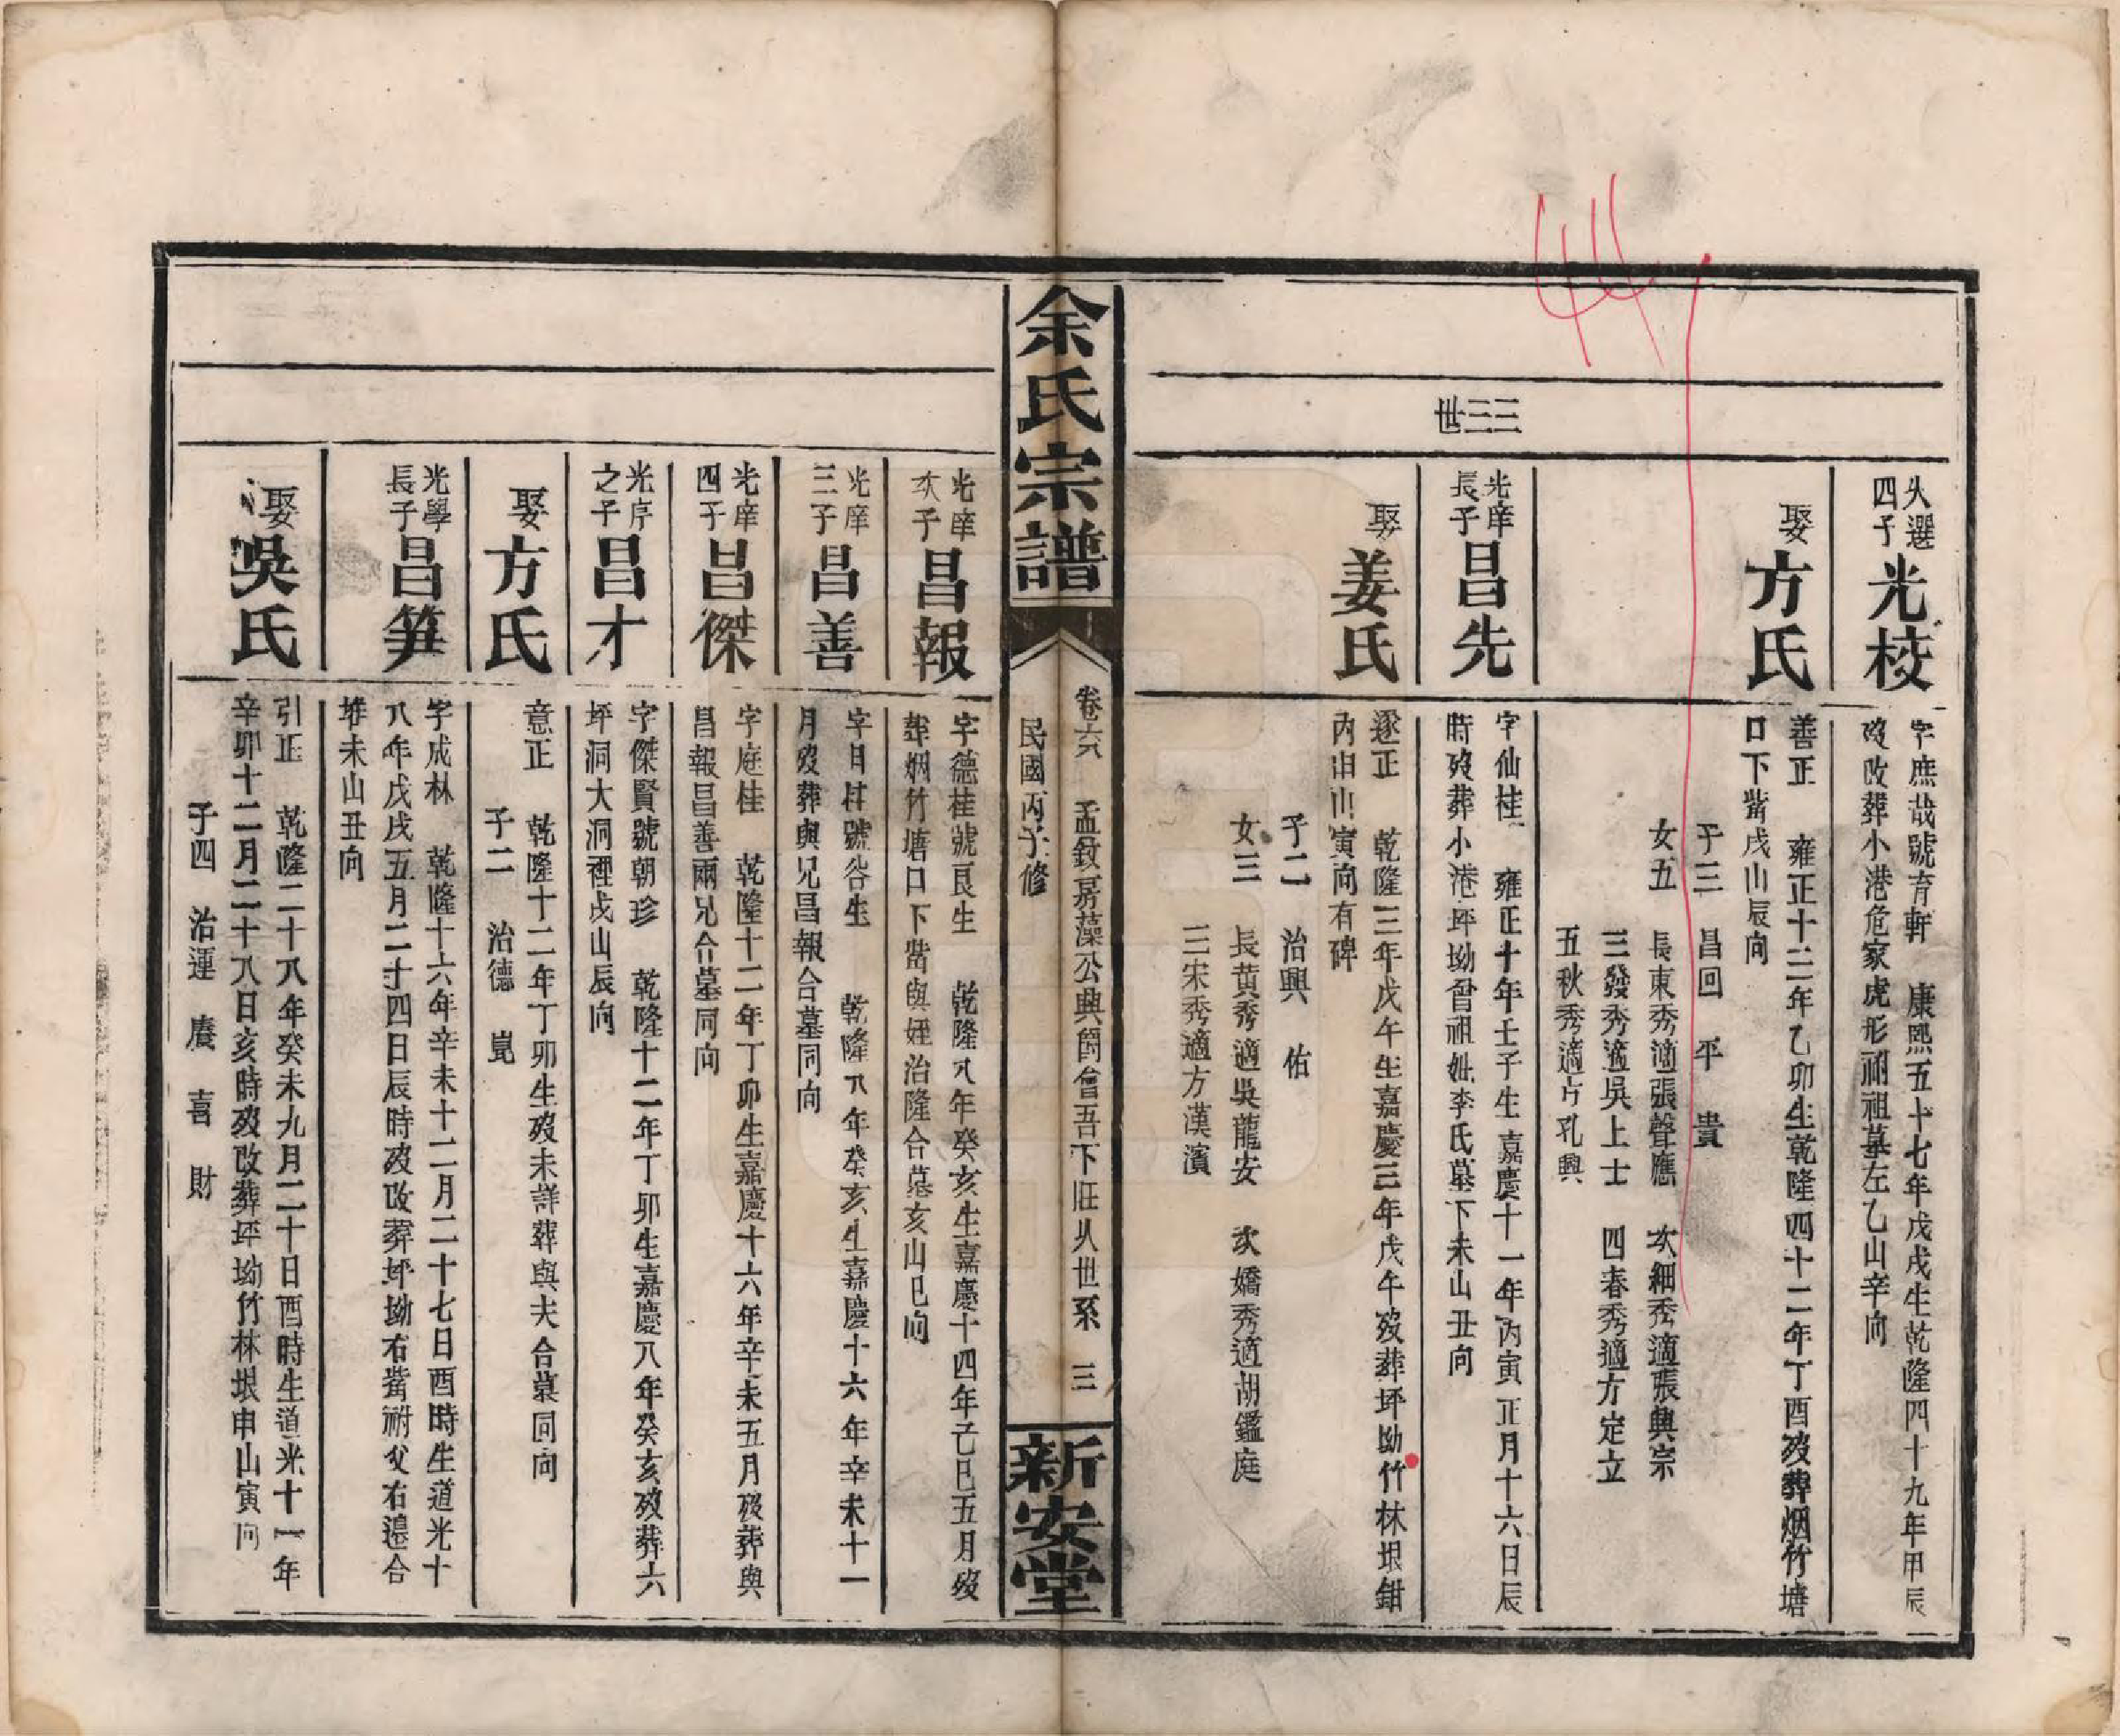 大選四子
光校
字庶哉號育軒　康熙五十七年戊戌生乾隆四十九年甲辰
歿改葬小港危家虎形祔祖墓左乙山辛向
娶方氏
善正　雍正十三年乙卯生乾隆四十二年丁酉歿葬烟竹塘
口下嘴戌山辰向
子三　昌回　平　貴
女五　長東秀適張聲應　次細秀適張興宗
三發秀適吳上士　四春秀適方定立
五秋秀適方孔興
三三世
光庠長子
昌先
字仙桂　雍正十年壬子生嘉慶十一年丙寅正月十六日辰
時歿葬小港坪坳曾祖妣李氏墓下未山丑向
娶姜氏
遂正　乾隆三年戊午生嘉慶三年戊午歿葬坪坳竹林垠鉗
內申山寅向有碑
子二　治興　佑
女三　長黃秀適吳龍安　次嬌秀適胡鑑庭
三宋秀適方漢濱
余氏宗譜
卷六　孟敘嘉藻公與爵曾吾下旺从世系　三
民國丙子修
新安堂
光庠次子
昌報
字德桂號艮生　乾隆八年癸亥生嘉慶十四年己巳五月歿
葬烟竹塘口下嘴與姪治隆合墓亥山巳向
光庠三子
昌善
字月桂號谷生　乾隆八年癸亥生嘉慶十六年辛未十一
月歿葬與兄昌報合墓同向
光庠四子
昌傑
字庭桂　乾隆十二年丁卯生嘉慶十六年辛未五月歿葬與
昌報昌善兩兄合墓同向
光序之子
昌才
字傑賢號朝珍　乾隆十二年丁卯生嘉慶八年癸亥歿葬六
坪洞大洞裡戌山辰向
娶方氏
意正　乾隆十二年丁卯生歿未詳葬與夫合墓同向
子二　治德　崑
光學長子
昌笋
字成林　乾隆十六年辛未十二月二十七日酉時生道光十
八年戊戌五月二十四日辰時歿改葬坪坳右嘴祔父右邉合
堆未山丑向
娶吳氏
引正　乾隆二十八年癸未九月二十日酉時生道光十一年
辛卯十二月二十八日亥時歿改葬坪坳竹林垠申山寅向
子四　治運　廣　喜　財